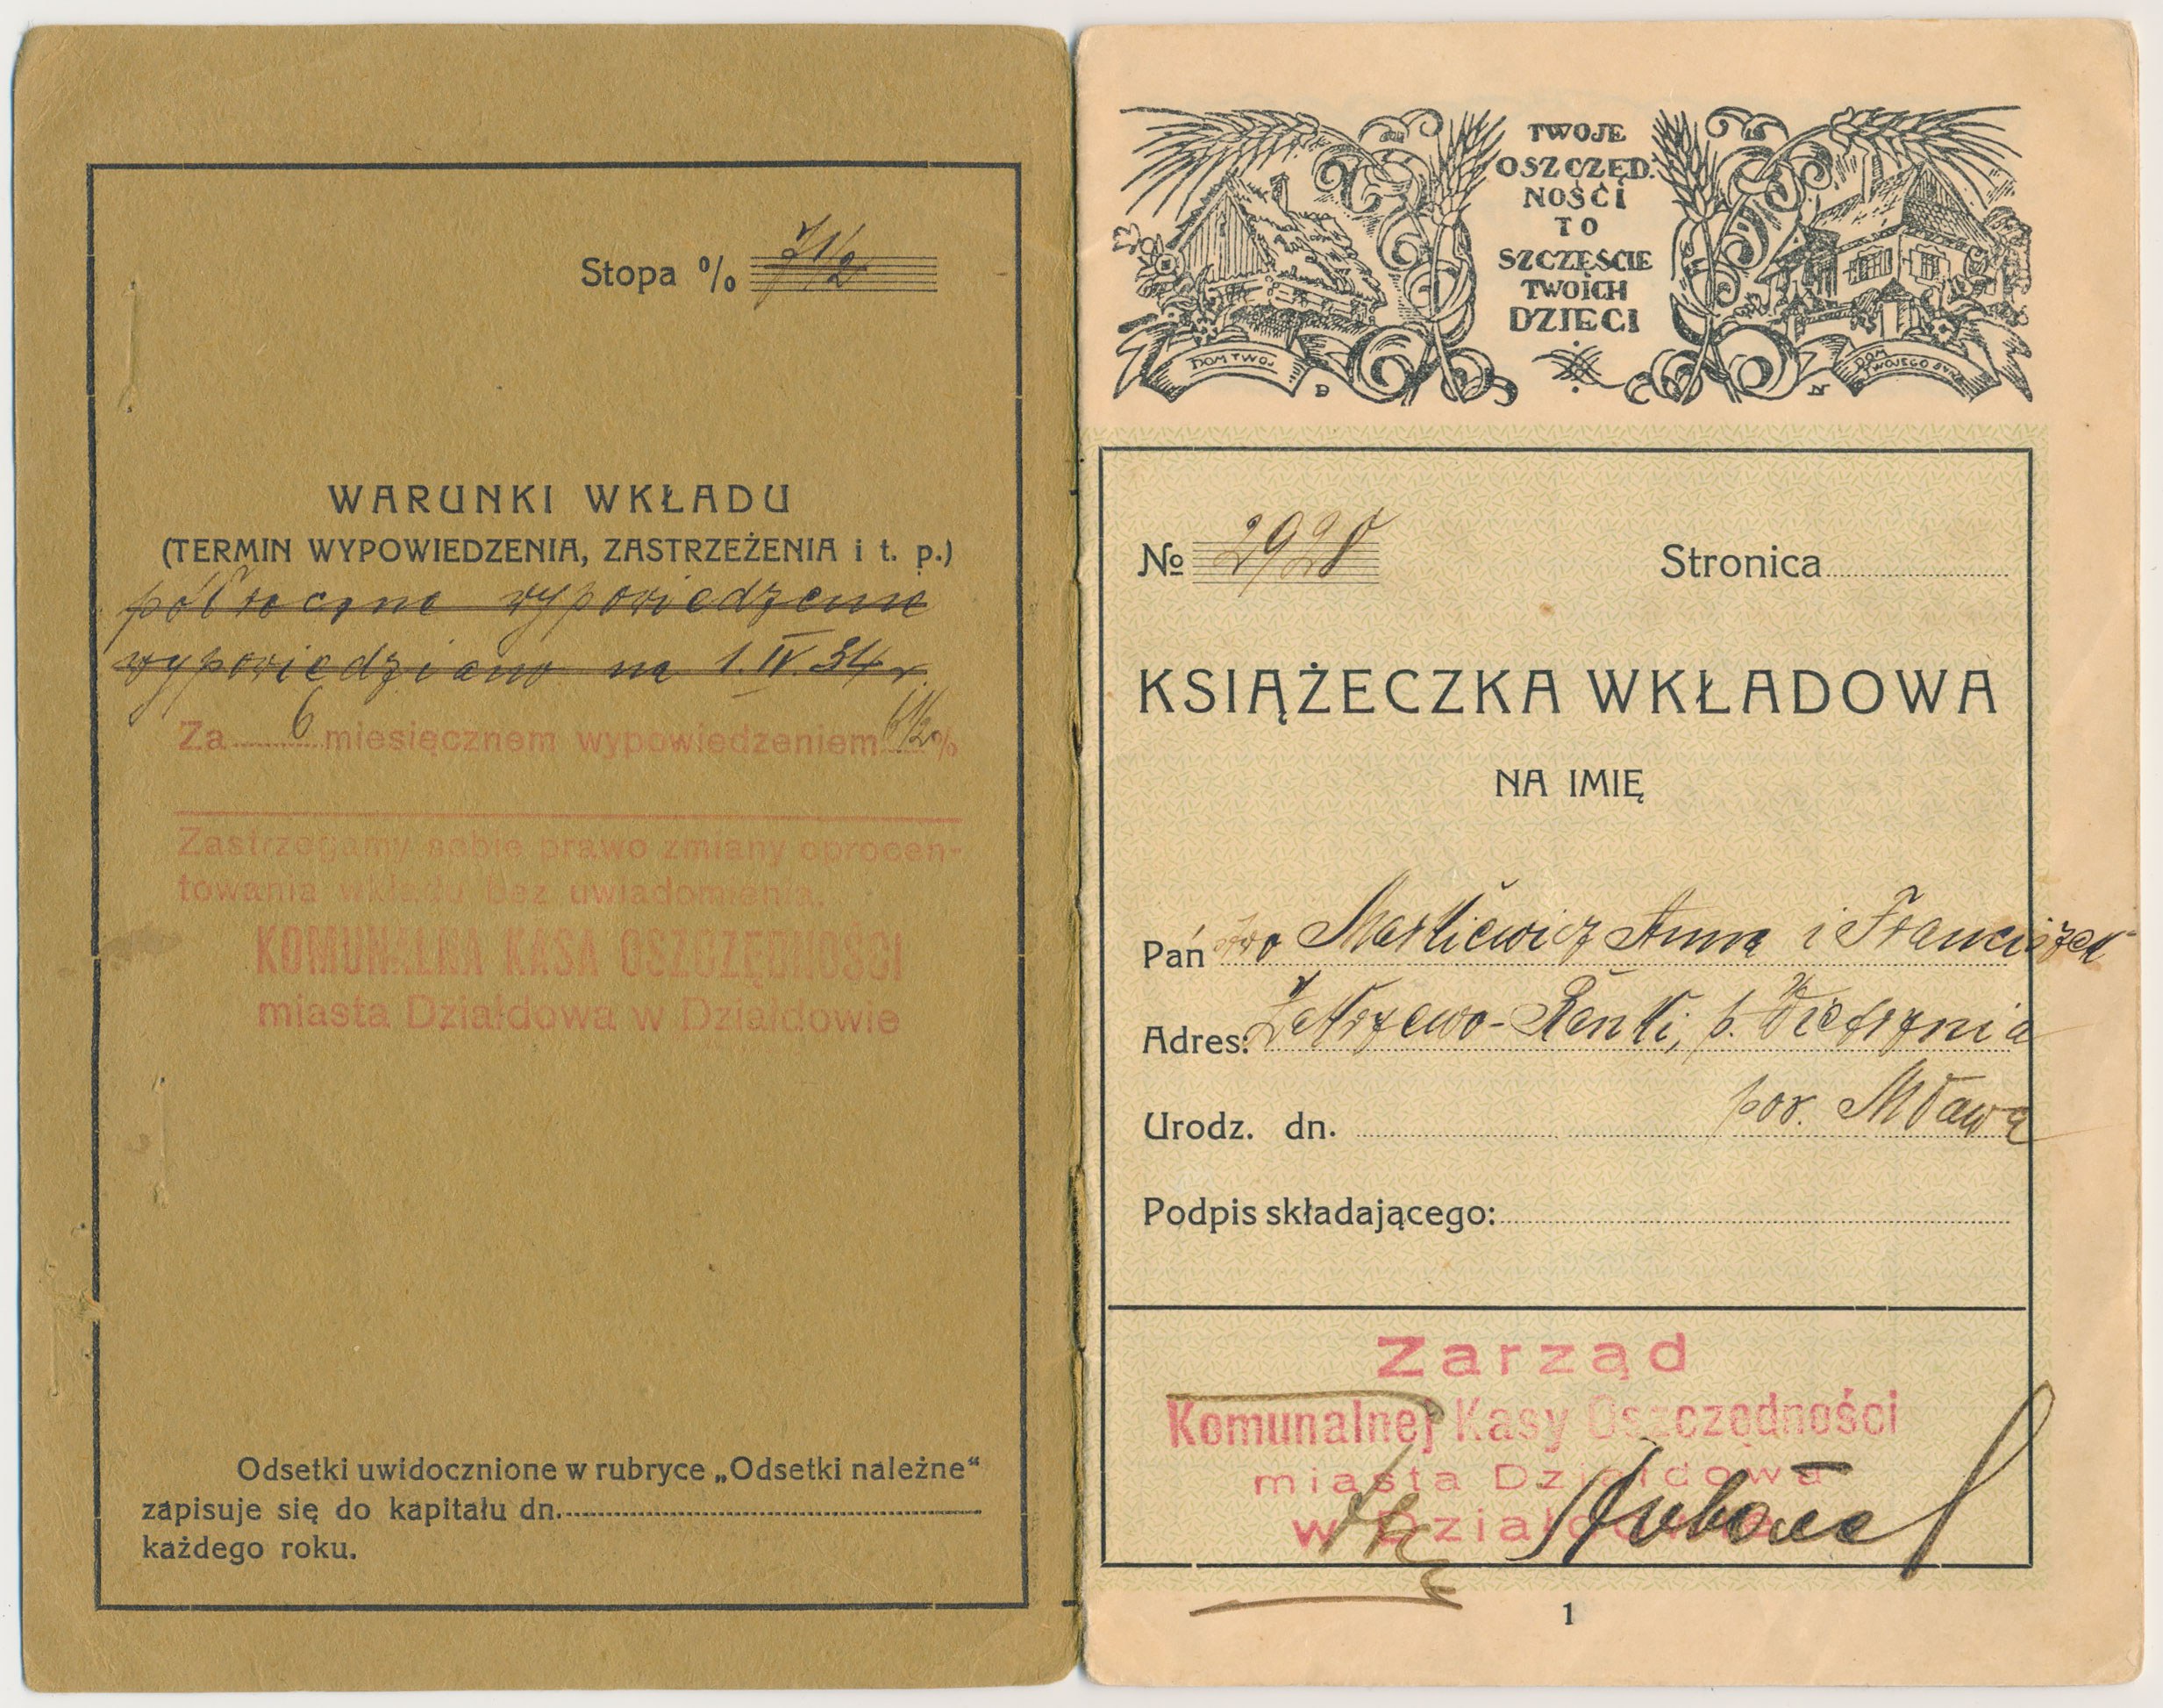 Stopa % 7 1/2
WARUNKI WKŁADU
(TERMIN WYPOWIEDZENIA, ZASTRZEŻENIA i t. p.)
półroczne wypowiedzenie
wypowiedziano na 1.IV.34 r.
Za 6 miesięcznem wypowiedzeniem 6 1/2 %
Zastrzegamy sobie prawo zmiany oprocen-
towania wkładu bez uwiadomienia.
KOMUNALNA KASA OSZCZĘDNOŚCI
miasta Działdowa w Działdowie
Odsetki uwidocznione w rubryce „Odsetki należne“
zapisuje się do kapitału dn.
każdego roku.
TWOJE
OSZCZĘD.
NOŚCI
TO
SZCZĘŚCIE
TWOICH
DZIECI
DOM TWOJ
DOM
TWOJEGO SYNA
D N
№ 2928 Stronica
KSIĄŻECZKA WKŁADOWA
NA IMIĘ
Państwo Markiewicz Anna i Franciszek
Adres: p.
pow. Mława
Urodz. dn.
Podpis składającego:
Zarząd
Komunalnej Kasy Oszczędności
miasta Działdowa
w Działdowie
1